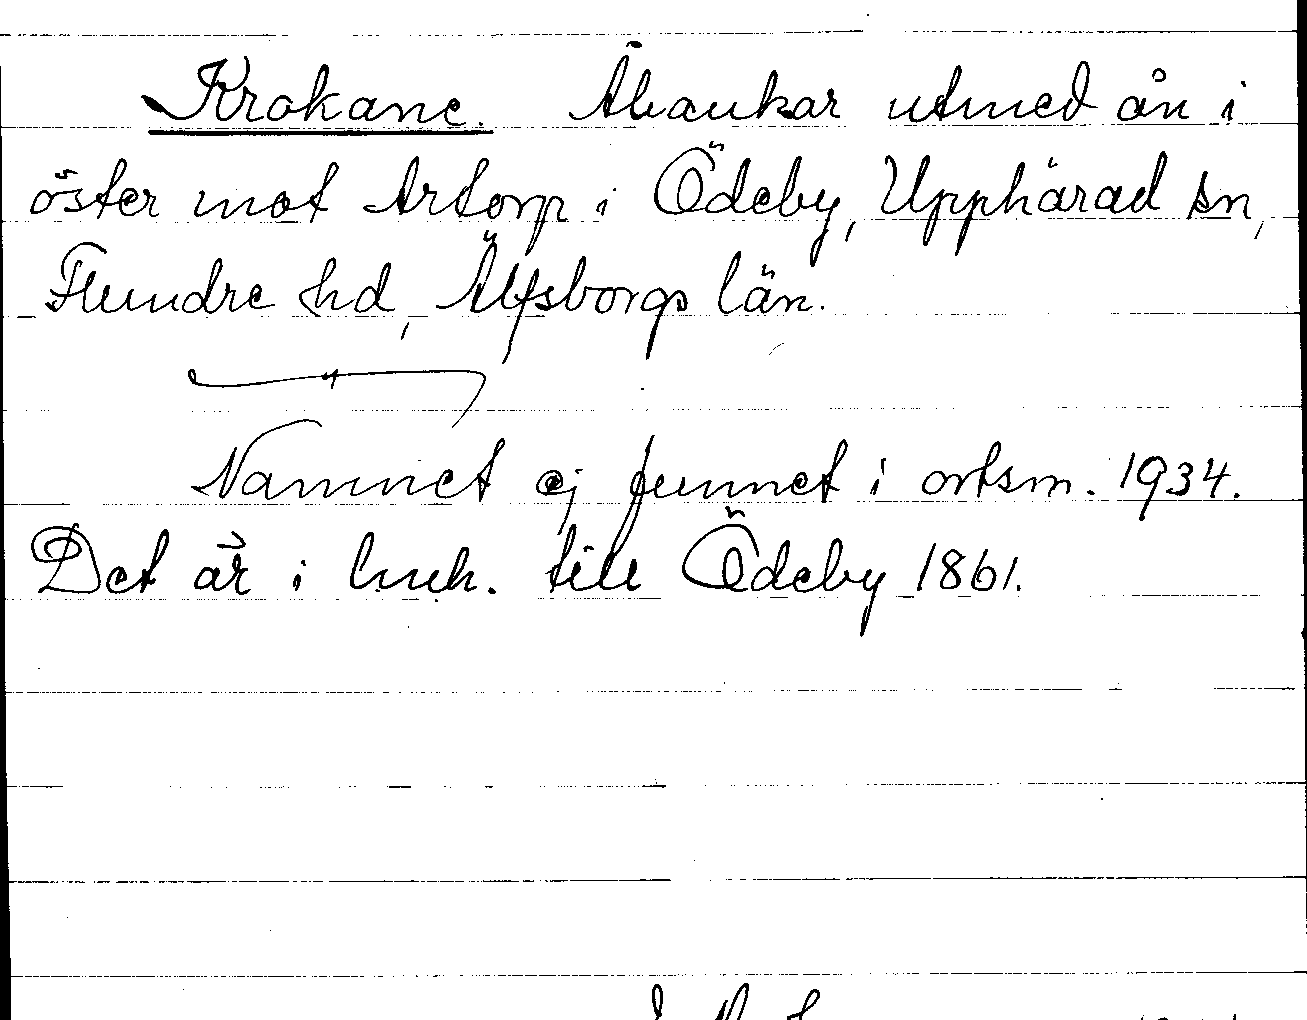 Krokane. Åbankar utmed ån i
öster mot Artorp i Ödeby, Upphärad sn,
Flundre hd, Älfsborgs län.
Namnet ej funnet i ortsm. 1934.
Det är i besk. till Ödeby 1861.